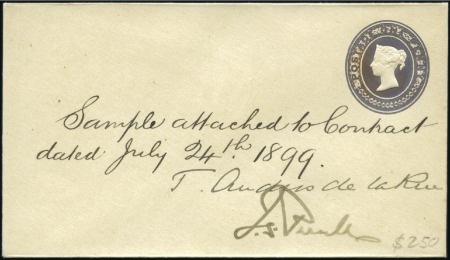 POSTAGE
Sample attached to Contract
dated July 24th. 1899.
T. Andros de la Rue
$250